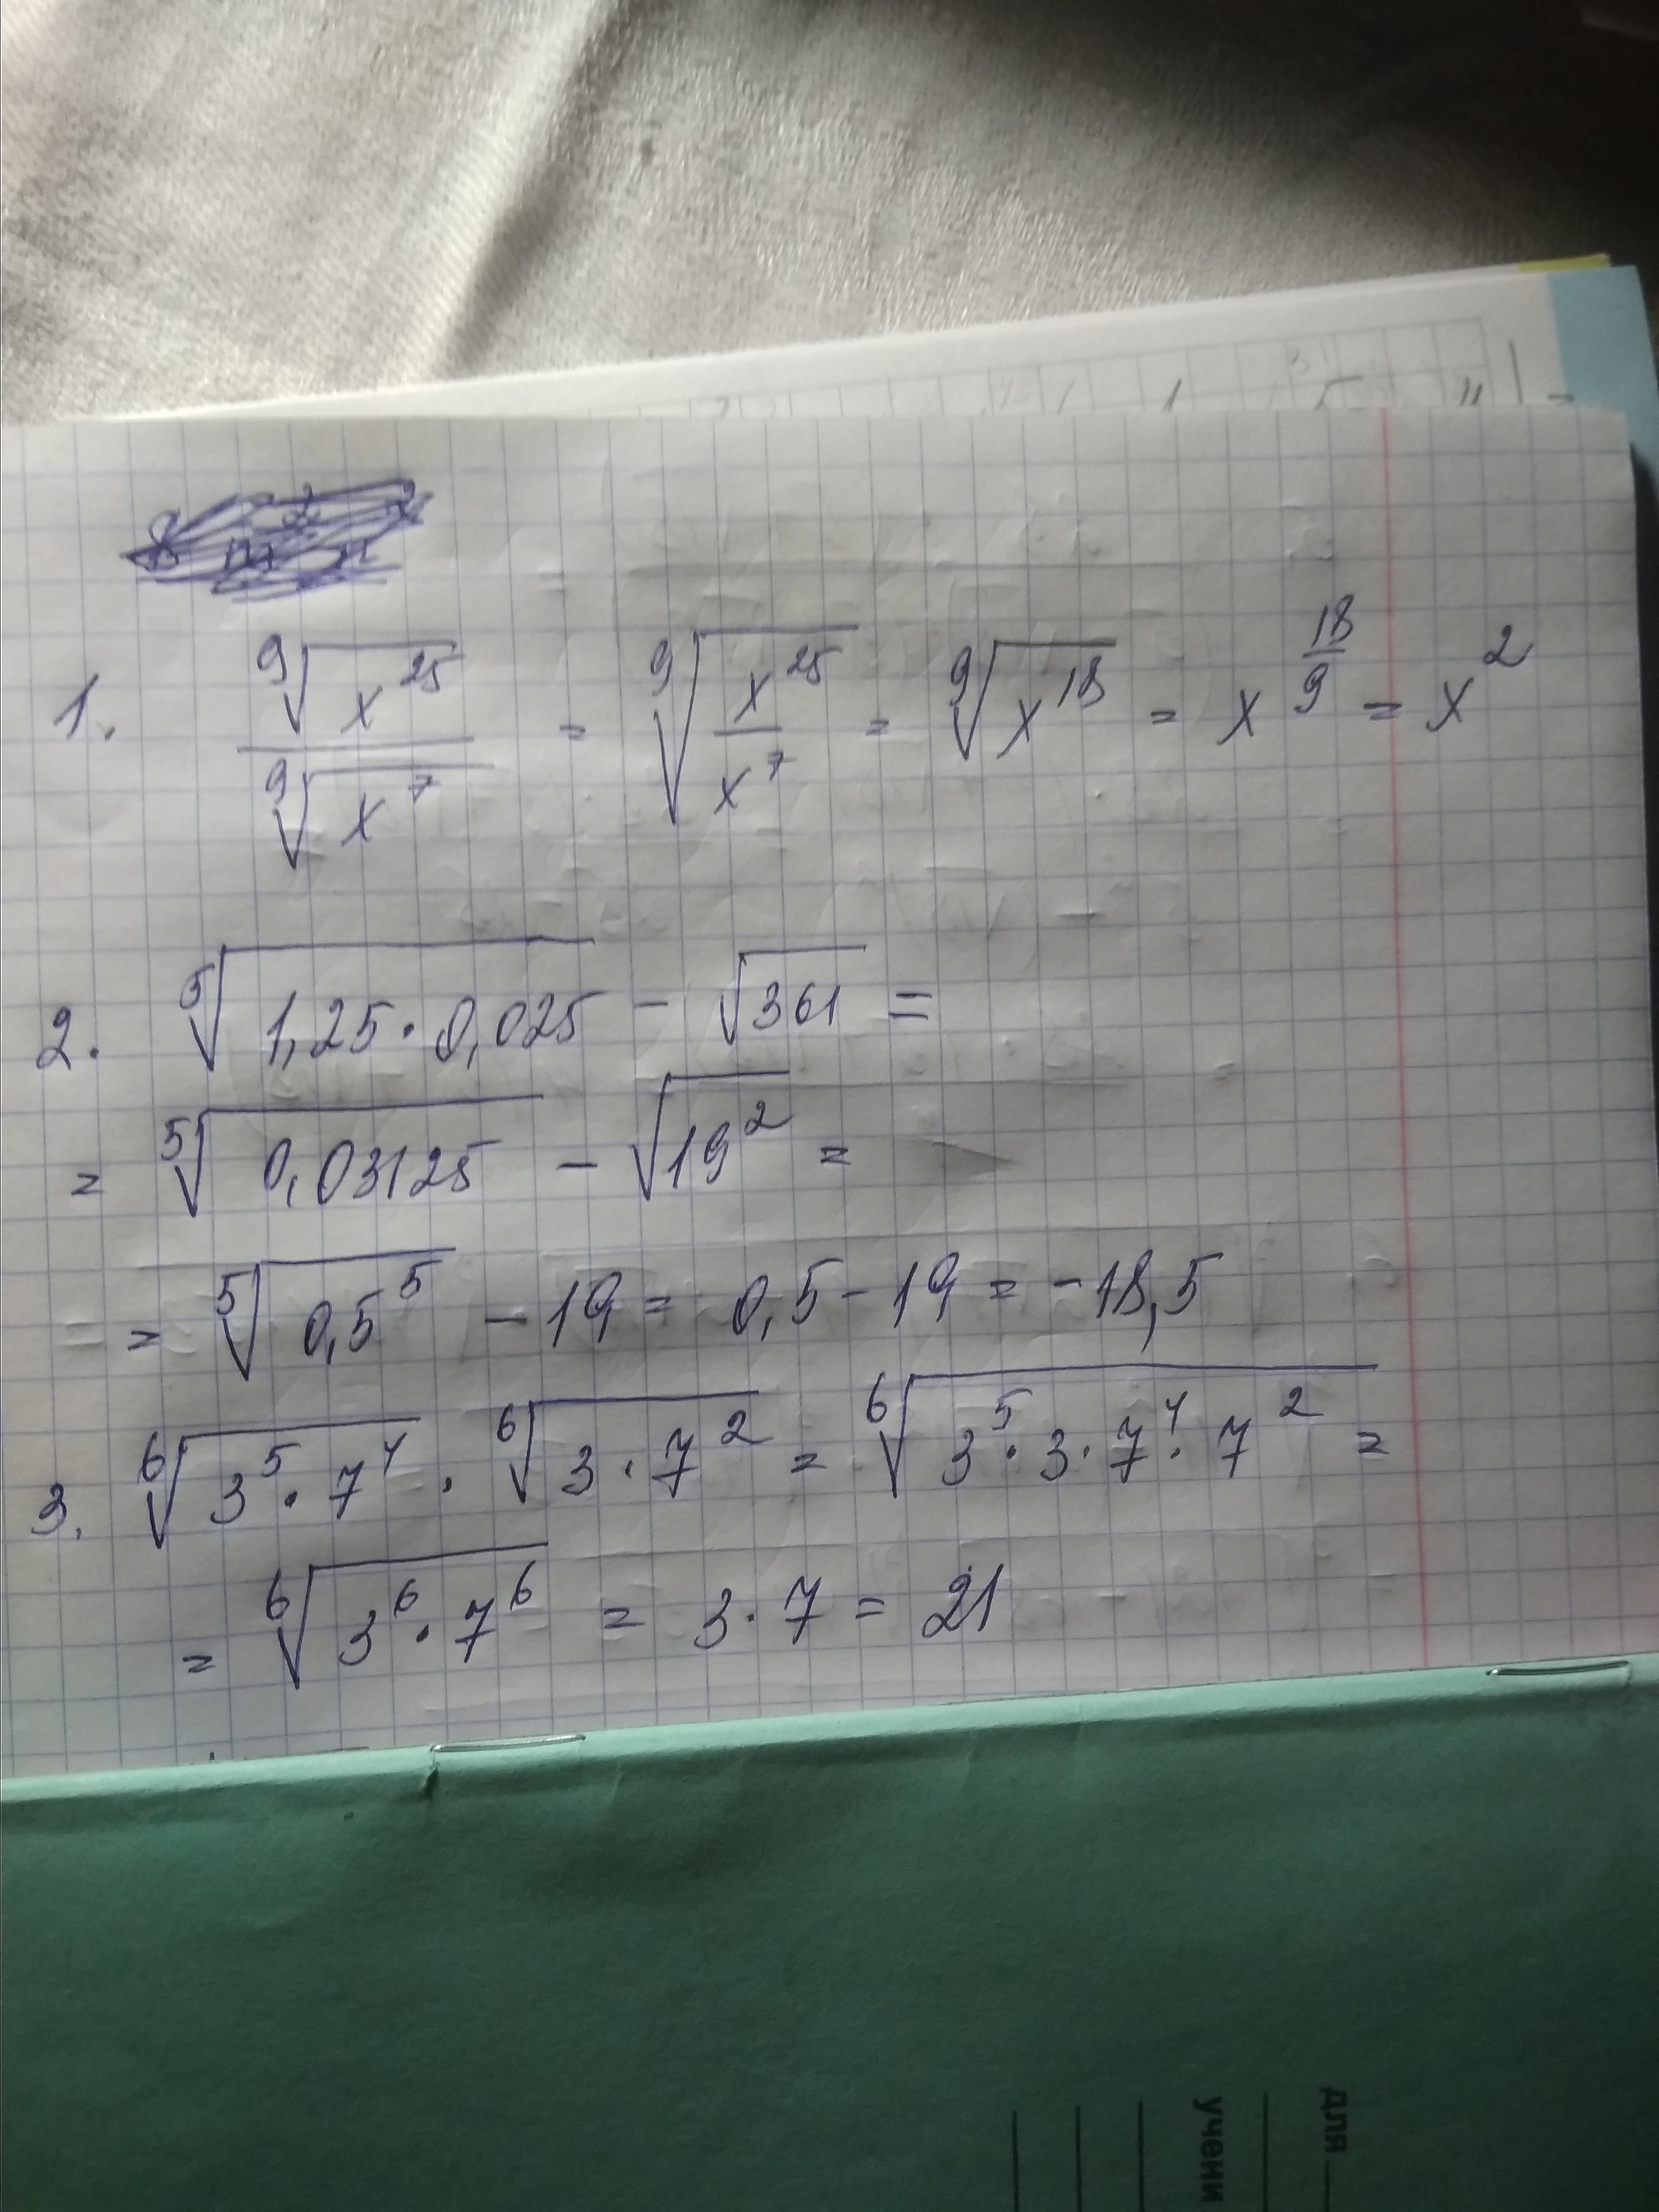 1. ⁹√x²⁵ / ⁹√x⁷ = ⁹√(x²⁵/x⁷) = ⁹√x¹⁸ = x^(18/9) = x²
2. ⁵√(1,25·0,025) - √361 =
= ⁵√0,03125 - √19² =
= ⁵√0,5⁵ - 19 = 0,5 - 19 = -18,5
3. ⁶√(3⁵·7⁴) · ⁶√(3·7²) = ⁶√(3⁵·3·7⁴·7²) =
= ⁶√(3⁶·7⁶) = 3·7 = 21
для
учени